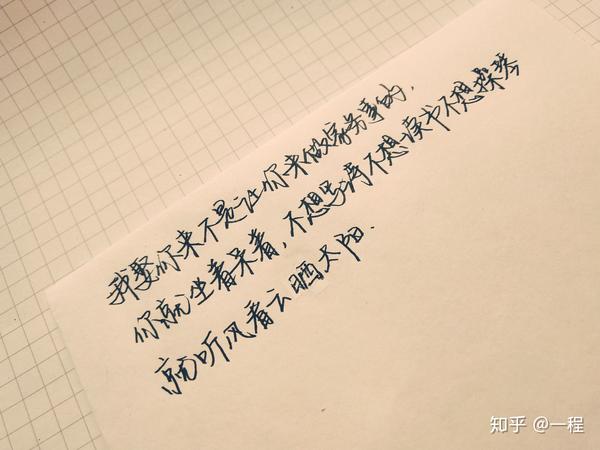 我娶你来不是让你来做家务事的.
你就坐着呆着,不想写诗不想读书不想操琴
就听风看云晒太阳.
知乎 @一程